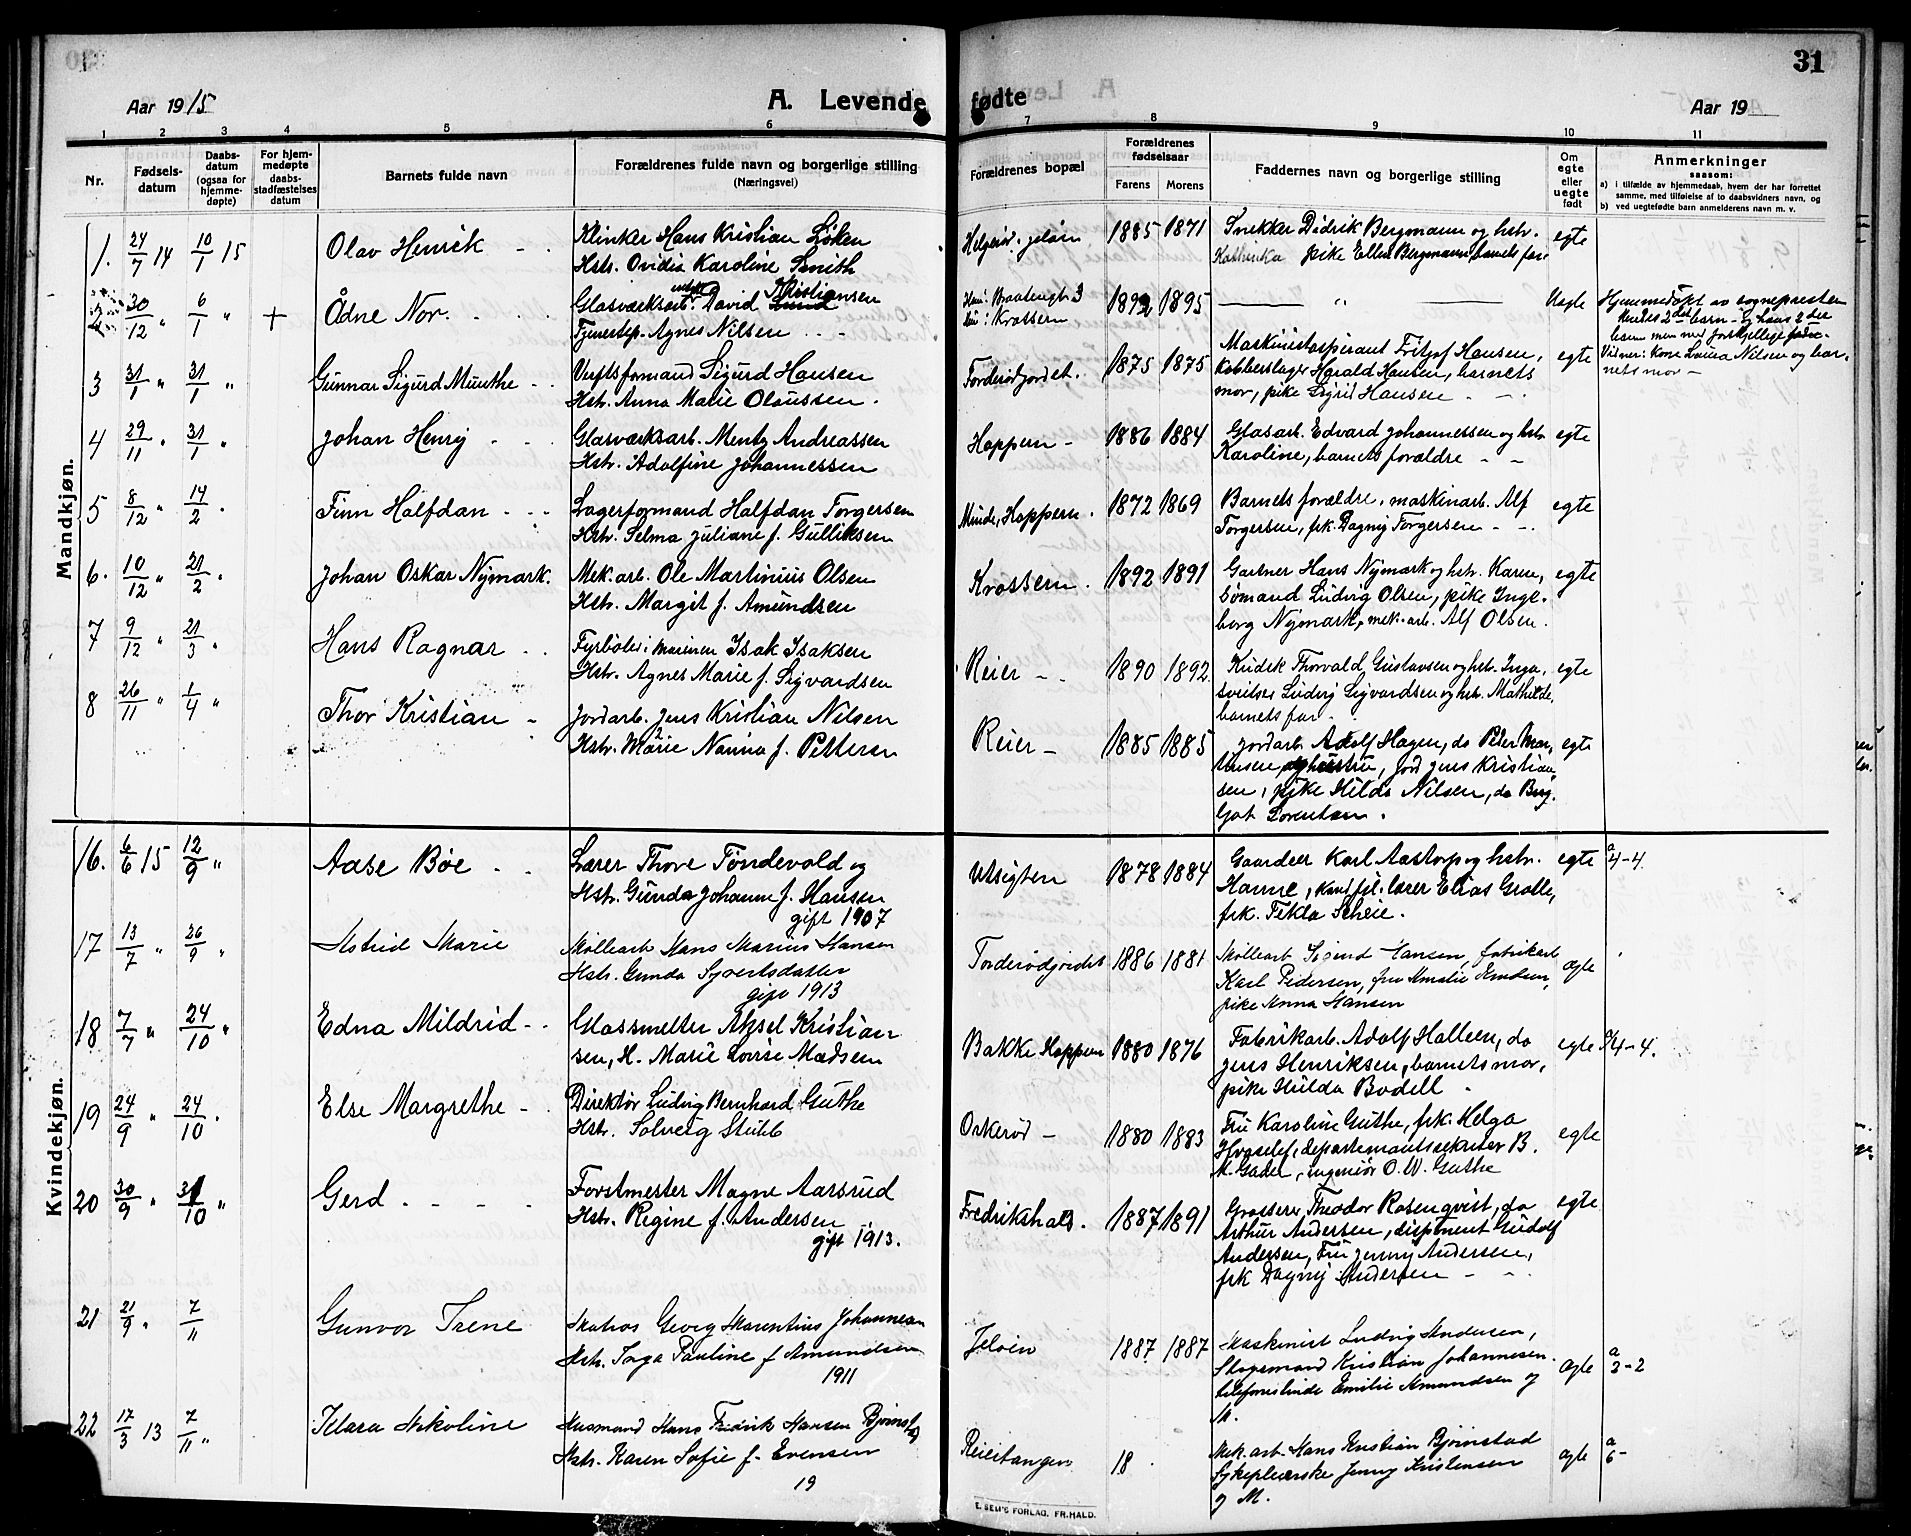 31
Aar 1915
A. Levende fødte
Aar 19
1 2 3 4 5 6 7 8 9 10 11
Nr.
Fødsels-
datum
Daabs-
datum
(ogsaa for
hjemme-
døpte)
For hjem-
medøpte
daabs-
stadfæstelses
datum
Barnets fulde navn
Forældrenes fulde navn og borgerlige stilling
(Næringsvei)
Forældrenes bopæl
Forældrenes
fødselsaar
Farens Morens
Faddernes navn og borgerlige stilling
Om
egte
eller
uegte
født
Anmerkninger
saasom:
a) i tilfælde av hjemmedaab, hvem der har forrettet
samme, med tilføielse af to daabsvidners navn, og
b) ved uegtefødte barn anmelderens navn m. v.
Mandkjøn.
1. 24/7 14 10/1 15 Olav Henrik Klinker Hans Kristian Løken
Hstr. Ovidia Karoline Smith
Helgerød, Jeløen 1885 1871 Snekker Didrik Bergmann og hstr.
Kathinka pike Ellen Bergmann, barnets far. egte
2 30/12 " 6/1 " + Ådne Nor. Glasværksarb. David Kristiansen
Tjenestep. Agnes Nilsen
Braatengt 3
Krossern 1892 1895 — " — Uegte
Hjemmedøpt av sognepresten
Hendes 2det barn - og hans 2det
barn men med forskjellige fædre.
Vidner: Kone Laura Nilsen og bar-
nets mor —
3 31/1 " 31/1 " Gunnar Sigurd Munthe Verftsformand Sigurd Hansen
Hstr. Anna Marie Olaussen.
Torderødjordet. 1875 1875 Maskinistaspirant Fritjof Hansen,
Kobberslager Harald Hansen, barnets
mor, pike Sigrid Hansen egte
4 29/11 31/1 " Johan Henry Glasværksarb. Mentz Andreassen
Hstr. Adolfine Johannessen
Hoppern 1886 1884 Glasarb. Edvard Johannessen og hstr.
Karoline, barnets forældre egte
5 8/12 " 14/2 Finn Halfdan Lagerformand Halfdan Torgersen
Hstr. Selma Juliane f. Gulliksen
Minde, Hoppern. 1872 1869 Barnets forældre, maskinarb. Alf
Torgersen, frk. Dagny Torgersen egte
6. 10/12 " 21/2 Johan Oskar Nymark. Mek. arb. Ole Martinius Olsen
Hstr. Margit f. Amundsen
Krossern. 1892 1891 Gartner Hans Nymark og hstr. Karen,
sømand Ludvig Olsen, pike Inge-
borg Nymark, mek. arb. Alf Olsen. egte
7 9/12 " 21/3 " Hans Ragnar Fyrbøter i marinen Isak Isaksen
Hstr. Agnes Marie f. Sigvardsen
Reier 1890 1892 Kudsk Thorvald Gustavsen og hstr. Inga,
Ludvig Sigvardsen og hstr. Mathilde,
barnets far. egte
8 26/11 " 1/4 " Thor Kristian Jordarb. Jens Kristian Nilsen
Hstr. Marie Nanna f. Pettersen
Reier 1885 1885 Jordarb. Adolf Hagen, do Peder Mar-
tinsen og hustru, Jord Jens Kristian-
sen, pike Hilda Nilsen, do Bir-
git Lorentsen. egte
Kvindekjøn.
16. 6/6 15 12/9 " Aase Bøe Lærer Thore Tøndevold og
Hstr. Gunda Johanne f. Hansen
gift 1907
Utsigten 1878 1884 Gaardeier Karl Aastorp og hstr.
Hanne, Kand. fil. lærer Elias Grølle,
frk. Tekla Scheie. egte a 4-4.
17 13/7 " 26/9 " Astrid Marie Møllearb Hans Marius Hansen
Hstr. Gunda Syvertsdatter
gift 1913
Torderødjordet 1886 1881 Møllearb Sigurd Hansen, fabrikarb
Karl Pedersen, fru Amalie Knudsen,
pike Anna Hansen ægte
18 7/7 " 24/10 " Edna Mildrid Glassmelter Aksel Kristian-
sen, H. Marie Lovise Madsen
Bakke Hoppern 1880 1876 Fabrikarb. Adolf Halleen, do
Jens Henriksen, barnets mor,
pike Hulda Bodell egte a/4-4.
19 24/9 " 24/10 Else Margrethe Direktør Ludvig Bernhard Guthe
Hstr. Solveig Stubb
Orkerød 1880 1883 Fru Karoline Guthe, frk. Helga
Hvoslef, departementssekretær B.
M. Gader, ingeniør O. W. Guthe egte
20 30/9 " 31/10 " Gerd Forstmester Magne Aarsrud
Hstr. Regine f. Andersen
gift 1913.
Fredrikshald. 1887 1891 Grosserer Theodor Rosenqvist, do
Arthur Andersen, disponent Gudolf
Andersen, Fru Jenny Andersen,
frk Dagny Andersen egte
21 21/9 " 7/11 Gunvor Irene Matros Georg Marentius Johannesen
Hstr. Inga Pauline f Amundsen
1911
Jeløen 1887 1887 Maskinist Ludvig Andersen,
Skogsmand Kristian Johannesen
telefonistinde Emilie Amundsen og
M. ægte a 2-2
22 17/3 13 7/11 " Klara Nikoline Husmand Hans Fredrik Hansen Bjørnstad
Hstr. Karen Sofie f. Evensen
19
Reiertangen 18 Mek. arb. Hans Kristian Bjørnstad
Sykepleierske Jenny Kristensen
og M. ægte a 6-
E. SEM'S FORLAG, FR.HALD.